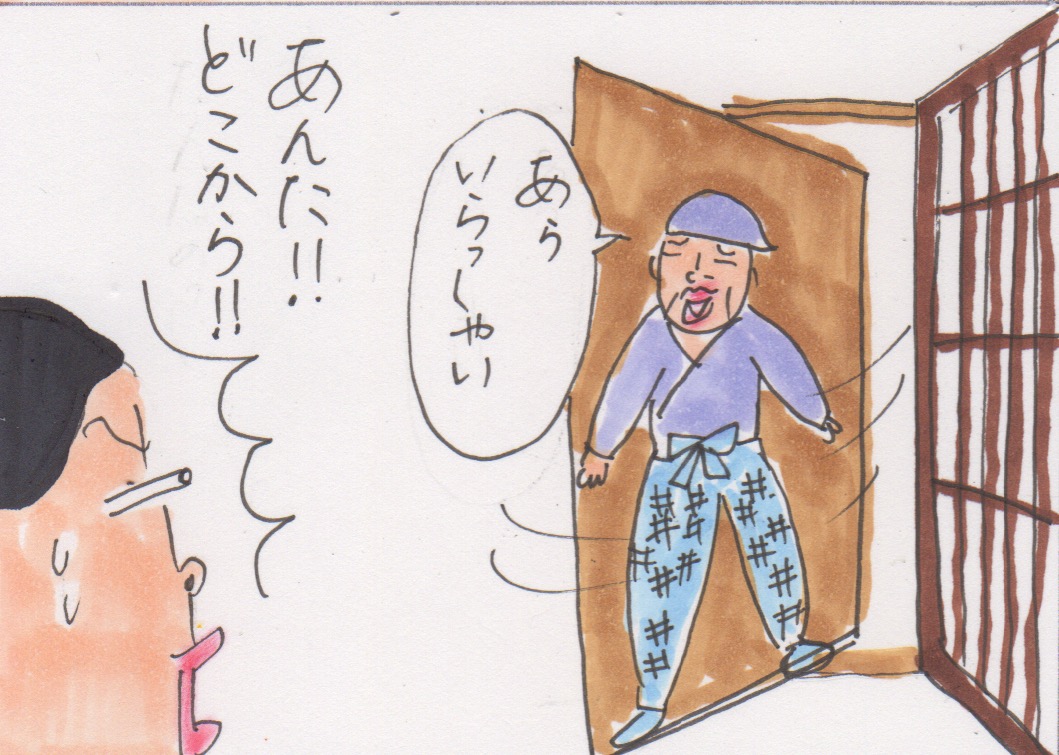 あら
いらっしゃい
あんた!!
どこから!!